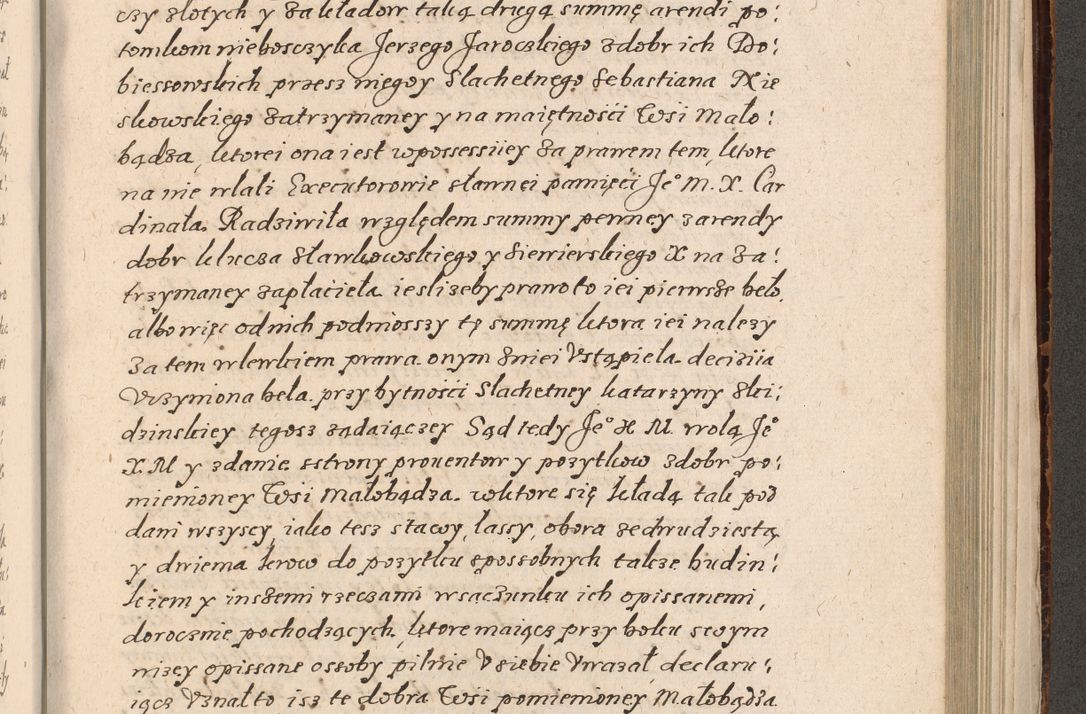 czy złotych y zakładow taką drugą summę arendi po:
tomkom nieboszczyka Jerzego Jaroczkiego z dobr ich Do:
biessowskich przesz niegoy Slachetnego Sebastiana Mie
skowskiego zatrzymaney y na maiętnośći Wsi Mało:
bądza, ktorei ona iest w possessiiey za prawem tem, ktore
na nie wlali Executorowie sławnei pamięci Je° M. X. Car
dinała Radziwiła względem summy pewney z arendy
dobr klucza Sławkowskiego y Siewierskiego X na za:
trzymaney zapłaciela iesliżeby prawo to iei pierwsze beło,
albo więc od nich podniosszy tę summę ktora iei należy
za tem wlewkiem prawa onym z niei Vstąpiela decizia
Vczyniona bela przy bytnośći Slachetney Katarzyny Ski:
dzinskiey tegosz żądaiączey Sąd tedy Je° X M wolą Je°
X. M y zdanie z strony prouentow y pożytkow z dobr po:
mienioney Wsi Małobądza w ktore się kładą tak pod
dani wszyscy, iako tesz stawy, lassy, obora ze dwudziestą
y dwiema krow do pożytku sposobnych także budin:
kiem y inszemi rzeczami w saczunku ich opissanemi,
dorocznie pochodzących, ktore maiącz przy boku swym
niżey opissane ossoby pilnie V siebie Vważał, declaru:
iącz Vznał to isz te dobra Wsi pomienioney Małobądza